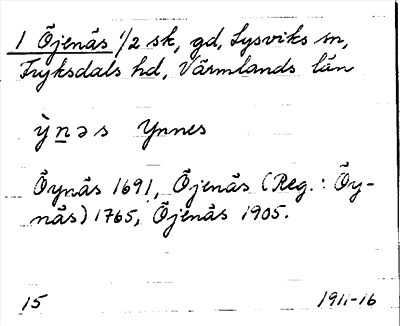 1 Öjenäs 1/2 sk, gd, Lysviks sn,
Fryksdals hd, Värmlands län
ỳnəs Ynnes
Öynäs 1691, Öjenäs (Reg.: Öy-
näs) 1765, Öjenäs 1905.
15 1911-16